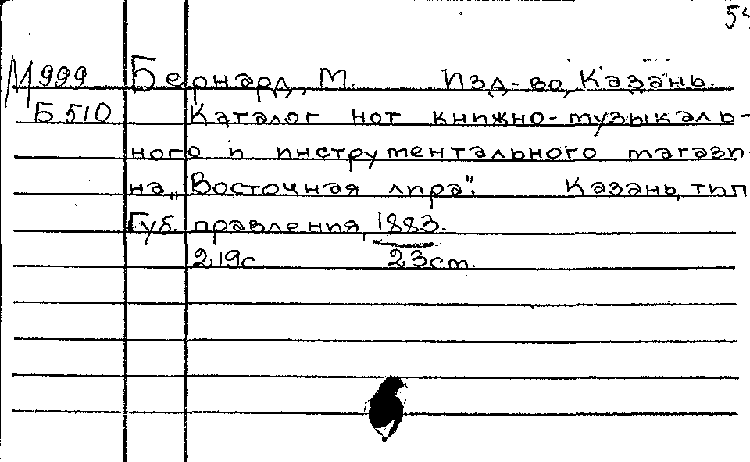 54
М999 Бернард, М. Изд-во, Казань.
Б510 Каталог нот книжно-музыкаль-
ного и инструментального магази
на „Восточная лира". Казань, тип
Губ. правления, 1883.
219с 23cm.